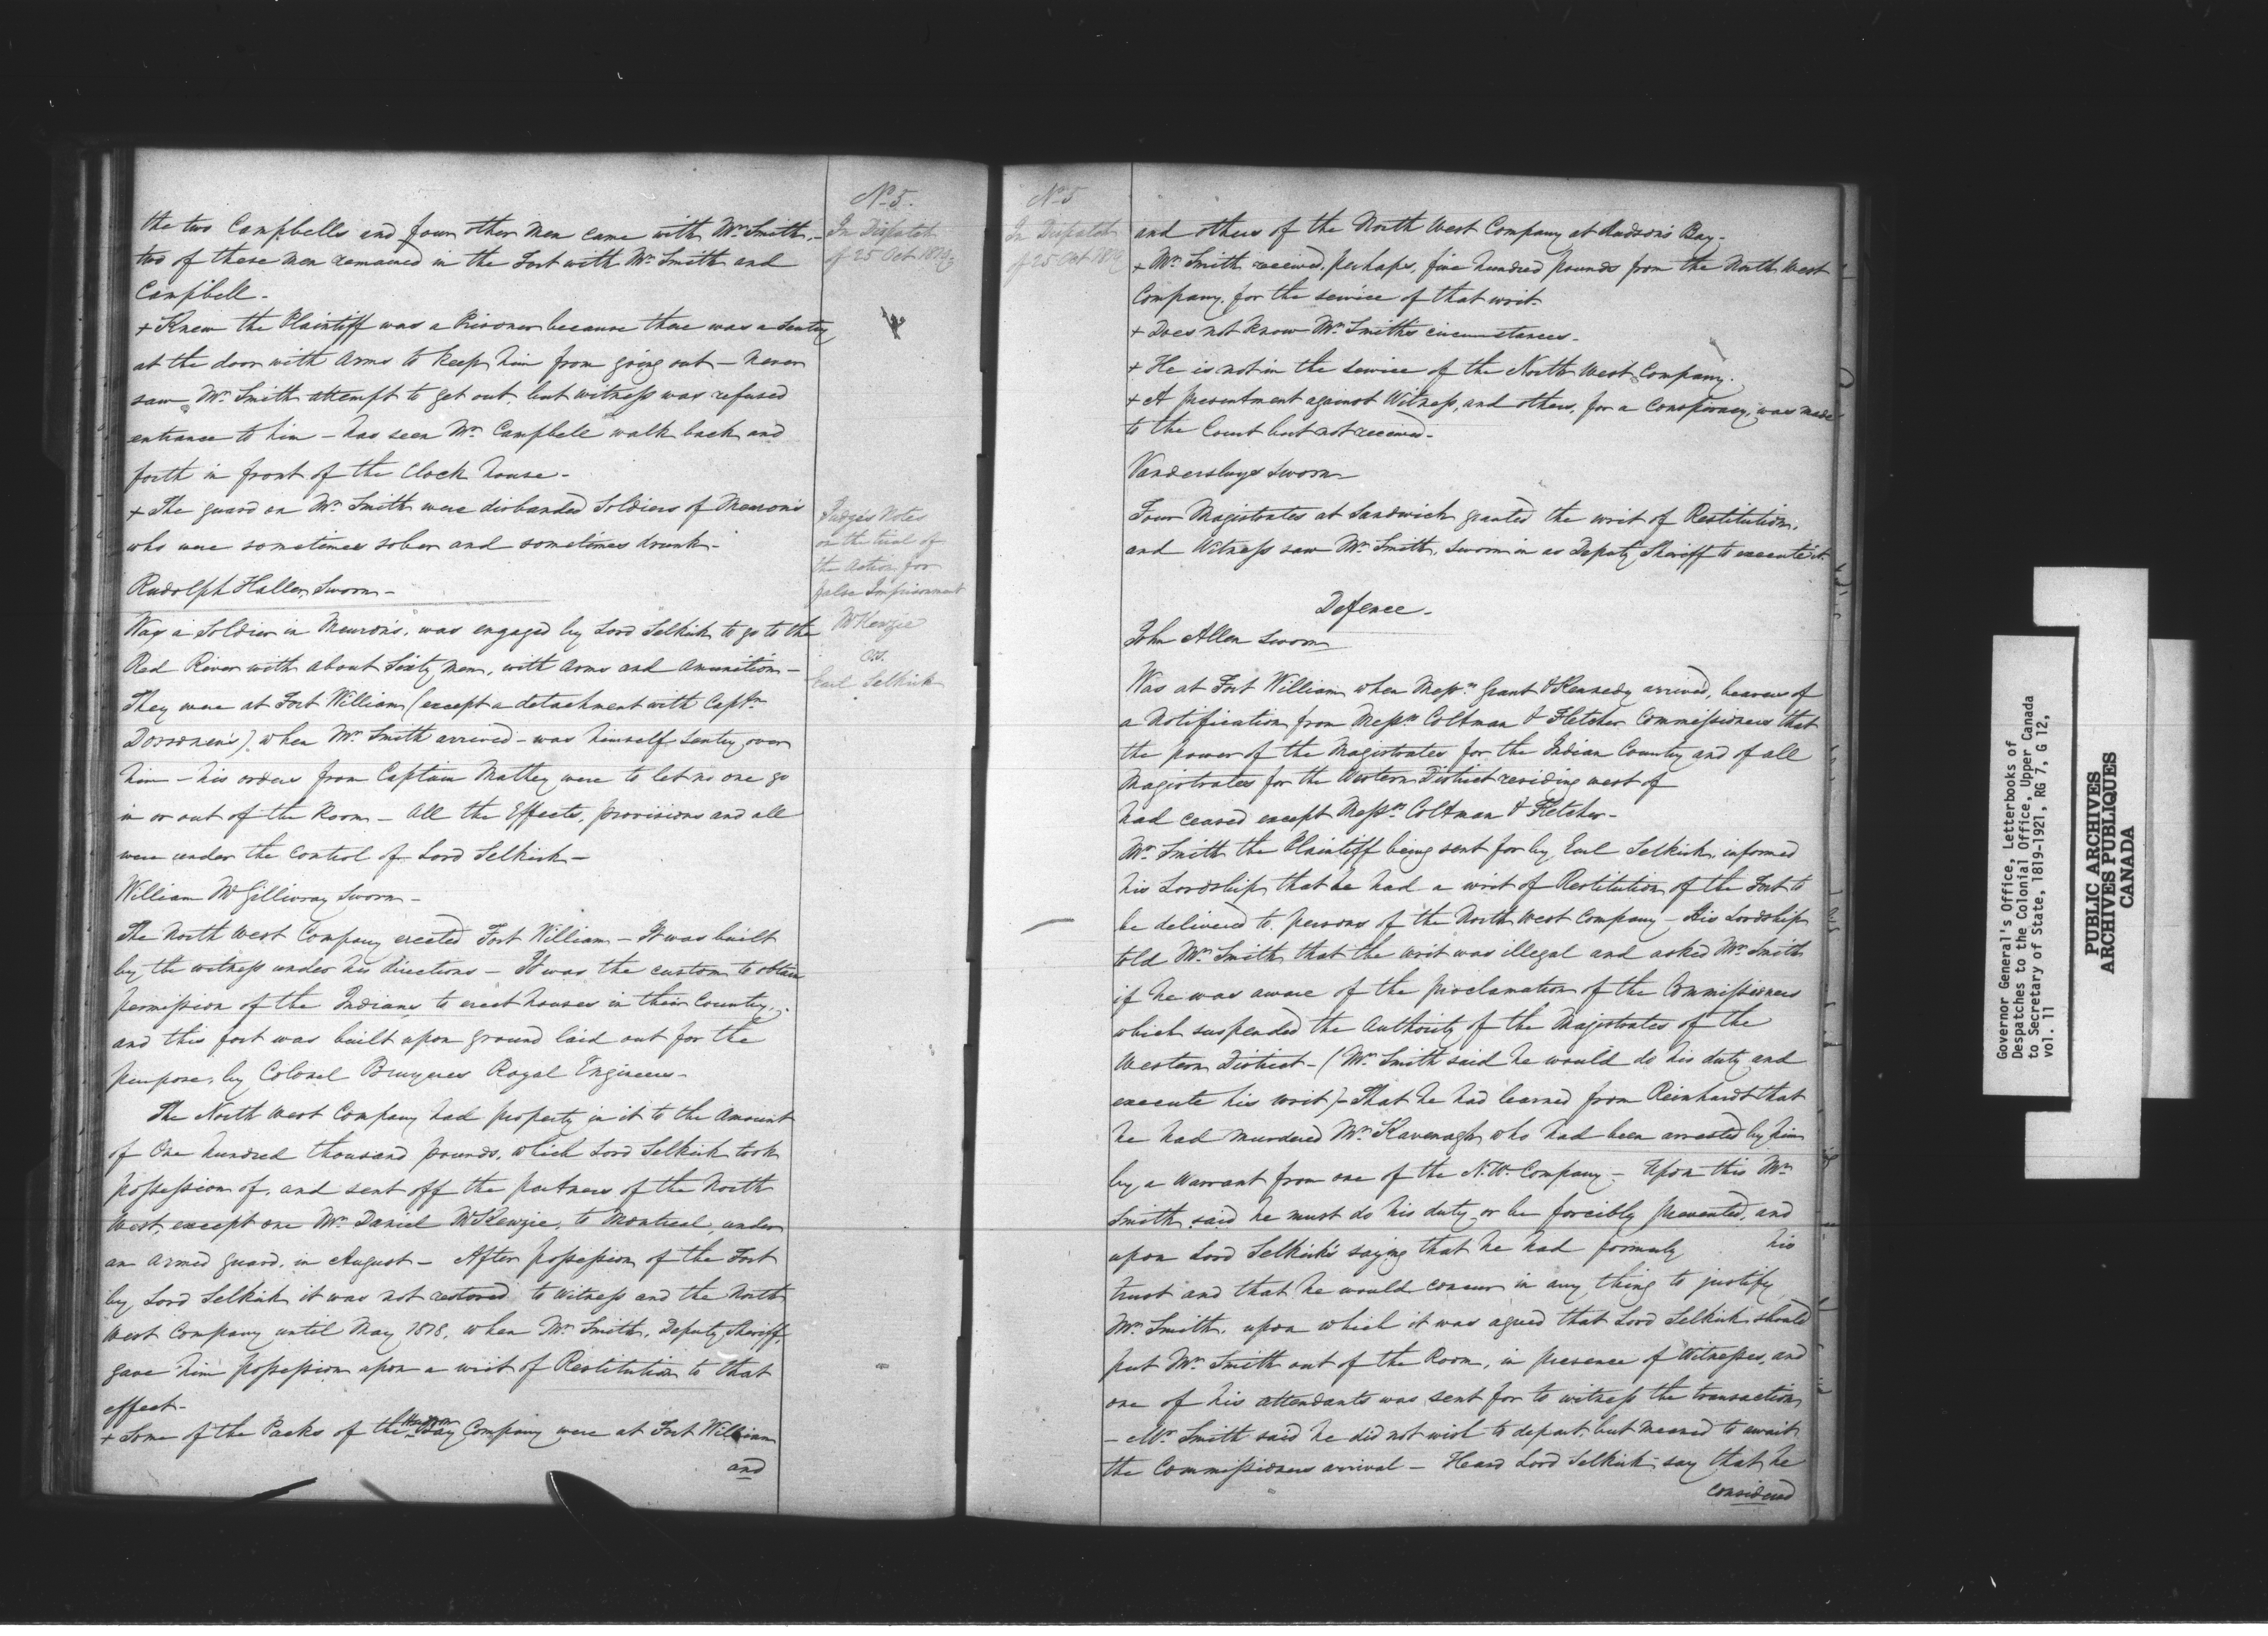 the two Campbells and four other men came with Mr. Smith,-
two of these men remained in the Fort with Mr. Smith and
Campbell-
+ Knew the Plaintiff was a Prisoner because there was a Sentry
at the door with arms to keep him from going out- never
saw Mr. Smith attempt to get out, but witness was refused
entrance to him- has seen Mr. Campbell walk back and
forth in front of the Clock house-
+ The guard on Mr. Smith were disbanded Soldiers of Meuron's
who were sometimes sober and sometimes drunk-
Rudolph Haller, Sworn-
Was a Soldier in Meuron's, was engaged by Lord Selkirk to go to the
Red River with about Sixty men, with arms and Amunition-
They were at Fort William (except a detachment with Captn
when Mr. Smith arrived- was himself Sentry over
him- his orders from Captain Mathey were to let no one go
in or out of the Room- All the Effects, provisions and all
were under the control of Lord Selkirk-
William McGillivray Sworn-
The North West Company erected Fort William- It was built
by the witness under his directions- It was the custom to obtain
permission of the Indians to erect houses in their Country,
and this fort was built upon ground laid out for the
purpose, by Colonel Bruyeres Royal Engineers-
The North West Company had property in it to the Amount
of One hundred thousand pounds, which Lord Selkirk took
possession of, and sent off the partners of the North
West, except one Mr. Daniel McKenzie, to Montreal, under
an armed guard, in August- After possession of the Fort
by Lord Selkirk it was not restored to Witness and the North
West Company until May 1818, when Mr. Smith, Deputy Sheriff,
gave him possession upon a writ of Restitution to that
effect-
+ Some of the Packs of the Hudson Bay Company were at Fort William
and
No. 5.
In Dispatch
of 25 Oct 1819.
Judges Notes
on the trial of
the Action for
false Imprisonment
McKenzie
vs.
Earl Selkirk
No. 5
In Dispatch
of 25 Oct 1819
and others of the North West Company at Hudson's Bay-
+ Mr. Smith received, perhaps, five hundred pounds from the North West
Company, for the service of that writ-
+ Does not know Mr. Smith's circumstances-
+ He is not in the service of the North West Company.
+ A presentment against Witness, and others, for a Conspiracy, was made
to the Court but not received-
Vandersluys Sworn
Four Magistrates at Sandwich granted the writ of Restitution,
and Witness saw Mr. Smith, sworn in as Deputy Sheriff to execute it.
Defence-
John Allen Sworn
Was at Fort William when Messrs. Grant & Kennedy arrived, bearers of
a Notification from Messrs. Coltman & Fletcher Commissioners that
the power of the Magistrates for the Indian Country and of all
Magistrates for the Western District residing west of
had ceased except Messrs. Coltman & Fletcher-
Mr. Smith the Plaintiff being sent for by Earl Selkirk, informed
his Lordship that he had a writ of Restitution of the Fort to
be delivered to persons of the North West Company- His Lordship
told Mr. Smith that the writ was illegal and asked Mr. Smith
if he was aware of the proclamation of the Commissioners
which suspended the Authority of the Magistrates of the
Western District- (Mr. Smith said he would do his duty and
execute his writ)- That he had learned from Reinhardt that
he had murdered Mr. Kavenagh who had been arrested by him
by a Warrant from one of the N.W. Company- Upon this Mr.
Smith said he must do his duty or be forcibly prevented, and
upon Lord Selkirk's saying that he had formerly his
trust and that he would concur in any thing to justify
Mr. Smith, upon which it was agreed that Lord Selkirk should
put Mr. Smith out of the Room, in presence of Witnesses, and
one of his attendants was sent for to witness the transaction
- Mr. Smith said he did not wish to depart but meaned to await
the Commissioners arrival- Heard Lord Selkirk say that he
considered
Governor General's Office, Letterbooks of
Despatches to the Colonial Office, Upper Canada
to Secretary of State, 1819-1921, RG 7, G 12,
vol. 11
PUBLIC ARCHIVES
ARCHIVES PUBLIQUES
CANADA